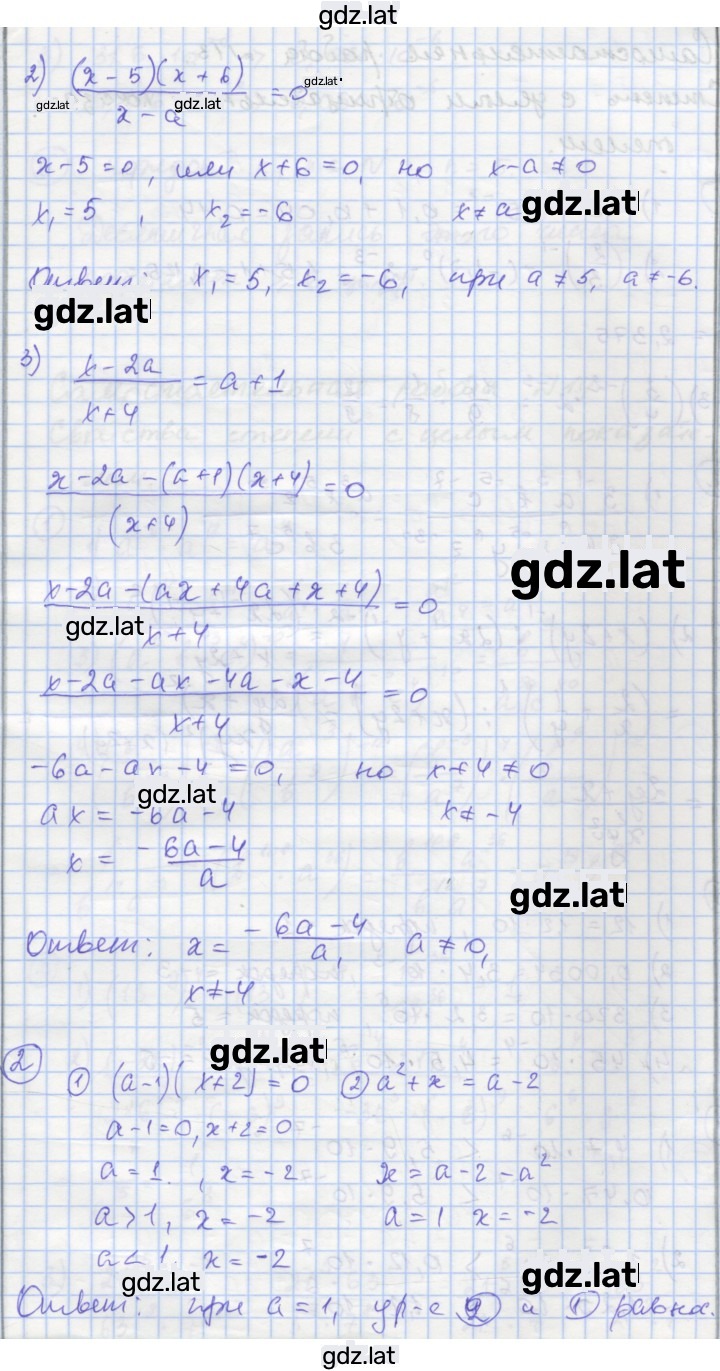 gdz.lat
2) (x - 5)(x + 6) / x - a = 0
gdz.lat gdz.lat gdz.lat
x - 5 = 0, или x + 6 = 0, но x - a ≠ 0
x₁ = 5, x₂ = -6 x ≠ a
gdz.lat
Ответ: x₁ = 5, x₂ = -6, при a ≠ 5, a ≠ -6.
gdz.lat
3) x - 2a / x + 4 = a + 1
x - 2a - (a + 1)(x + 4) / (x + 4) = 0
gdz.lat
x - 2a - (ax + 4a + x + 4) / x + 4 = 0
gdz.lat
x - 2a - ax - 4a - x - 4 / x + 4 = 0
-6a - ax - 4 = 0, но x + 4 ≠ 0
gdz.lat
ax = -6a - 4 x ≠ -4
x = -6a - 4 / a
gdz.lat
Ответ: x = -6a - 4 / a, a ≠ 0,
x ≠ -4
gdz.lat
2 1 (a - 1)(x + 2) = 0 2 a² + x = a - 2
a - 1 = 0, x + 2 = 0
a = 1, x = -2 x = a - 2 - a²
a > 1, x = -2 a = 1 x = -2
a < 1. x = -2
gdz.lat gdz.lat
Ответ: при a = 1, ур-е 2 и 1 равна.
gdz.lat